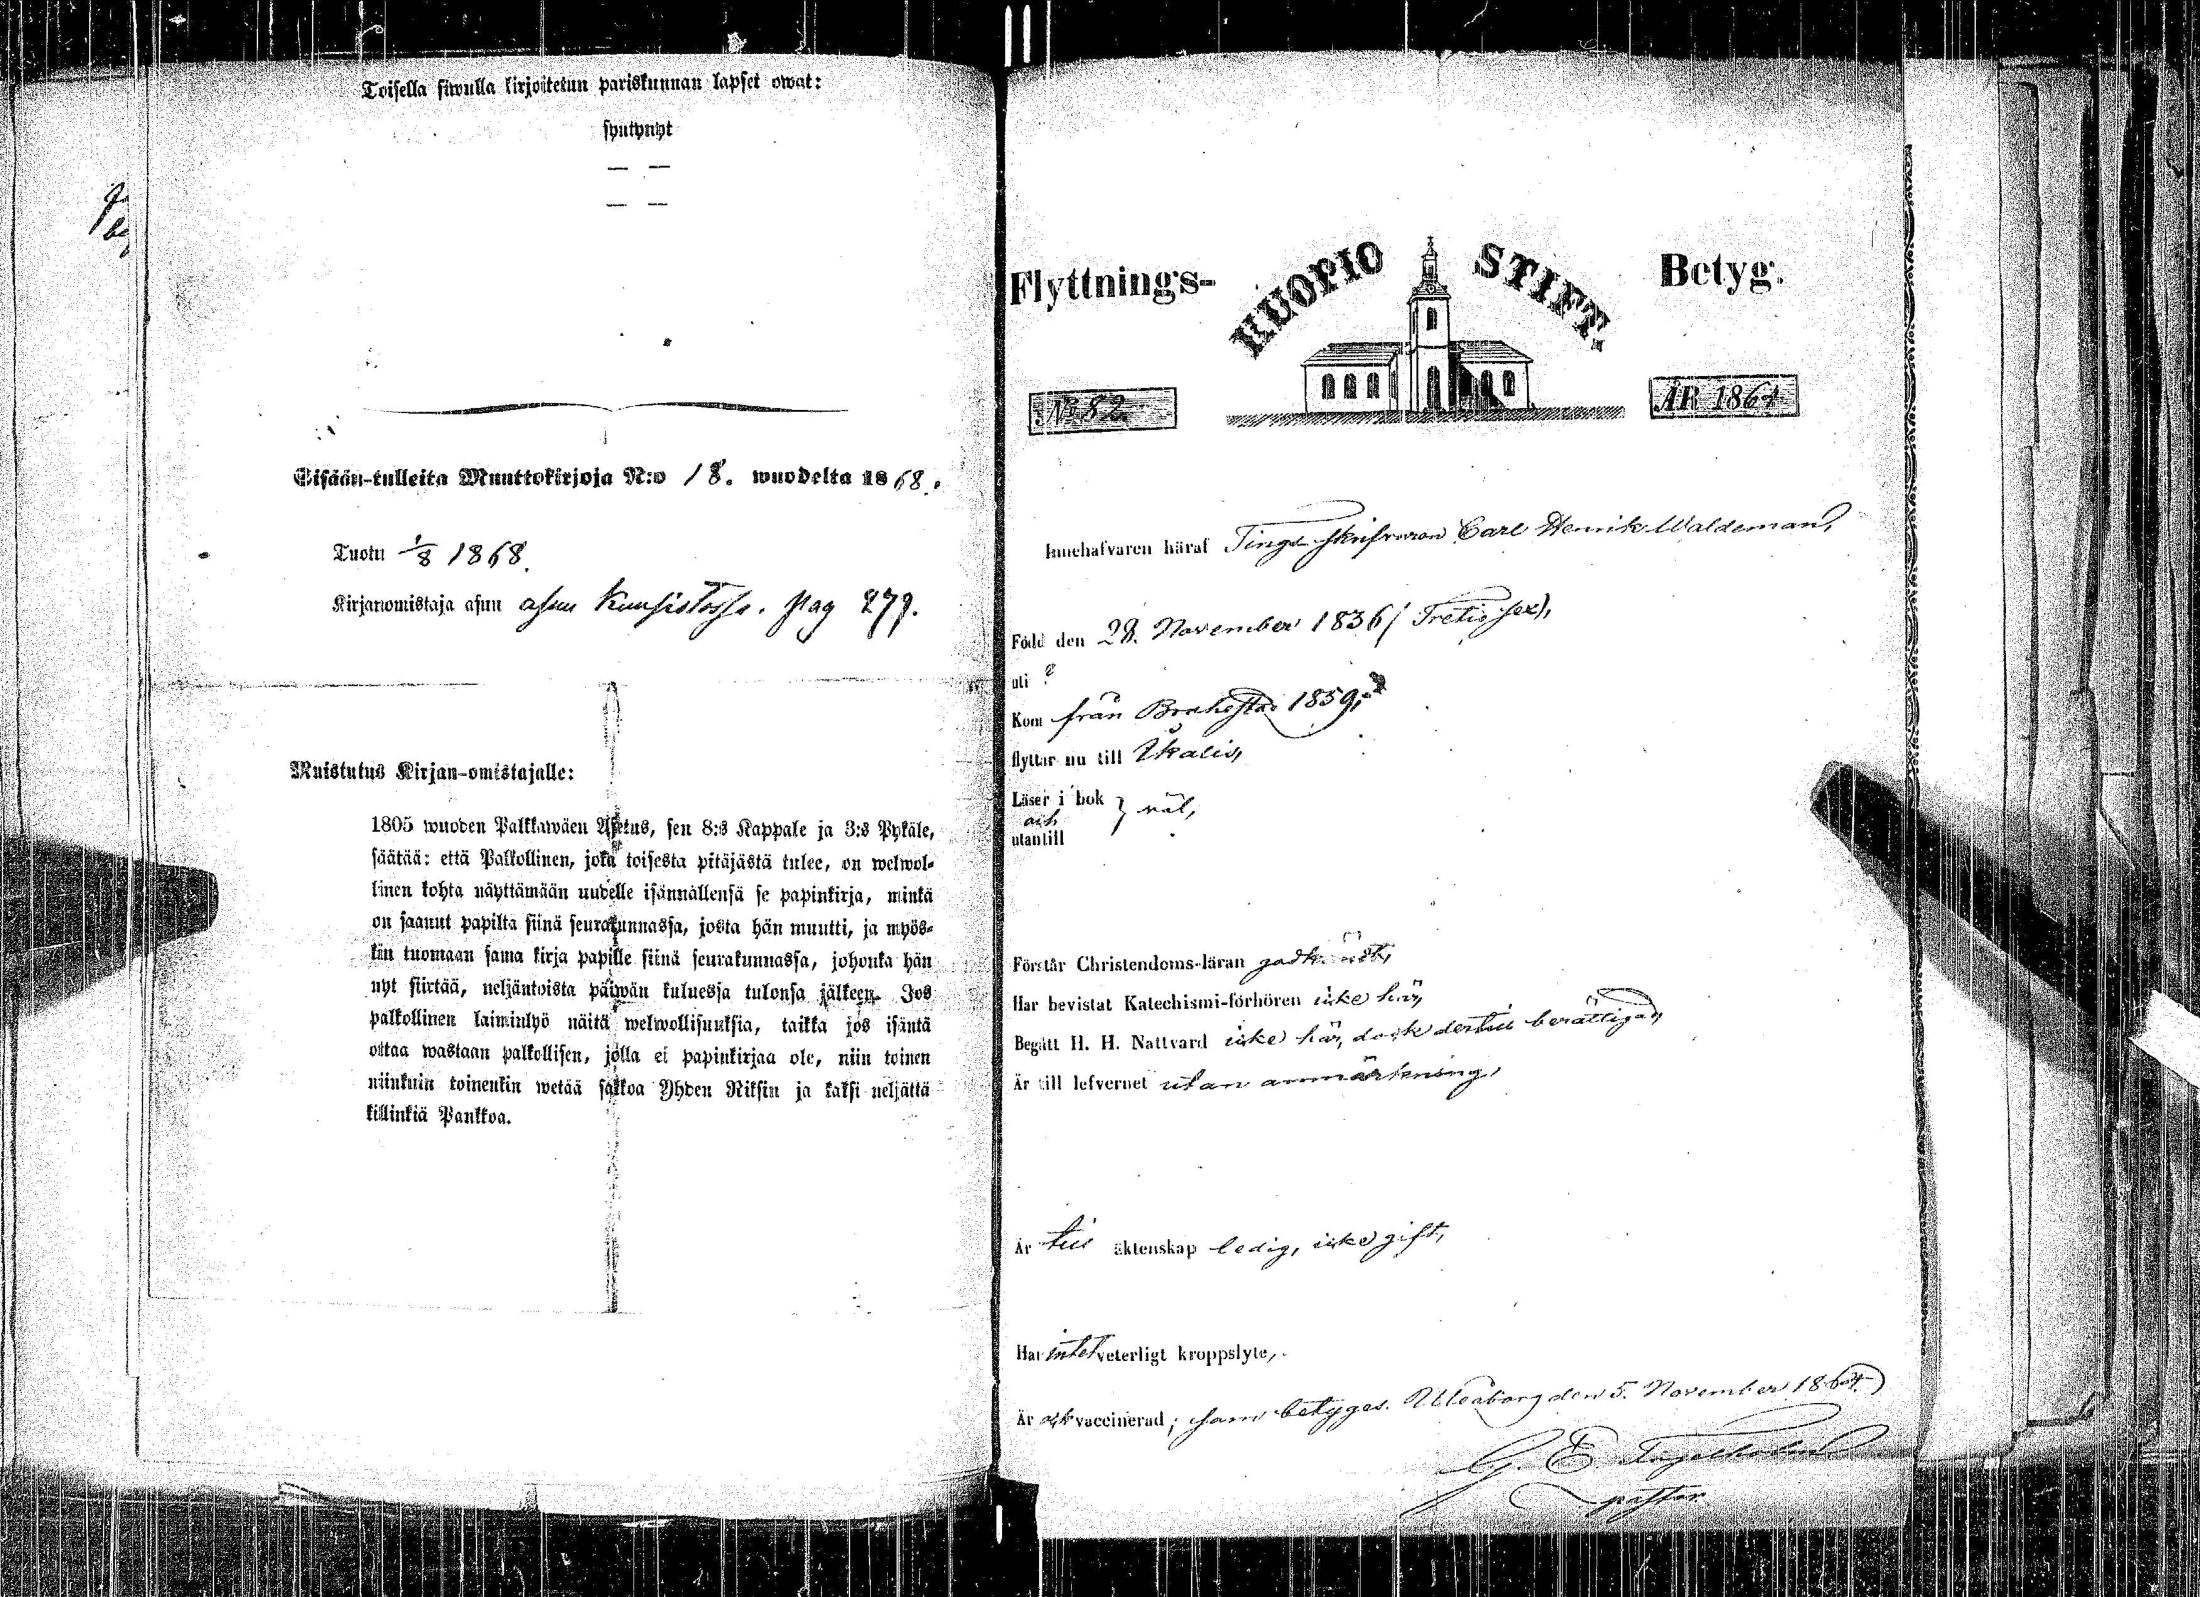 Toisella siwulla kirjoitetun pariskunnan lapset owat:
syntynyt
— —
— —
Sisään-tulleita Muuttokirjoja N:o 18. wuodelta 1868.
Tuotu 1/8 1868.
Kirjanomistaja asuu asuu Kuusistossa. pag 279.
Muistutus Kirjan-omistajalle:
1805 wuoden Palkkawäen Asetus, sen 8:s Kappale ja 3:s Pykäle,
säätää: että Palkollinen, joka toisesta pitäjästä tulee, on welwol-
linen kohta näyttämään uudelle isännällensä se papinkirja, minkä
on saanut papilta siinä seurakunnassa, josta hän muutti, ja myös-
kin tuomaan sama kirja papille siinä seurakunnassa, johonka hän
nyt siirtää, neljäntoista päiwän kuluessa tulonsa jälkeen. Jos
palkollinen laiminlyö näitä welwollisuuksia, taikka jos isäntä
ottaa wastaan palkollisen, jolla ei papinkirjaa ole, niin toinen
niinkuin toinenkin wetää sakkoa Yhden Riksin ja kaksi neljättä
killinkiä Pankkoa.
Flyttnings- KUOPIO STIFT. Betyg.
No 82 ÅR 1864
Innehafvaren häraf Tingsskrifvaren Carl Henrik Waldeman,
Född den 28. November 1836 (Tretiosex),
uti ?
Kom från Brahestad 1859,
flyttar nu till Ikalis,
Läser i bok } väl,
och
utantill
Förstår Christendoms-läran godkändt,
Har bevistat Katechismi-förhören icke här,
Begått H. H. Nattvard icke här, dock dertill berättigad,
Är till lefvernet utan anmärkning,
Är till äktenskap ledig, icke gift,
Har intet veterligt kroppslyte,
Är ock vaccinerad; som betygas. Uleåborg den 5. November 1864.
G. E.
pastor